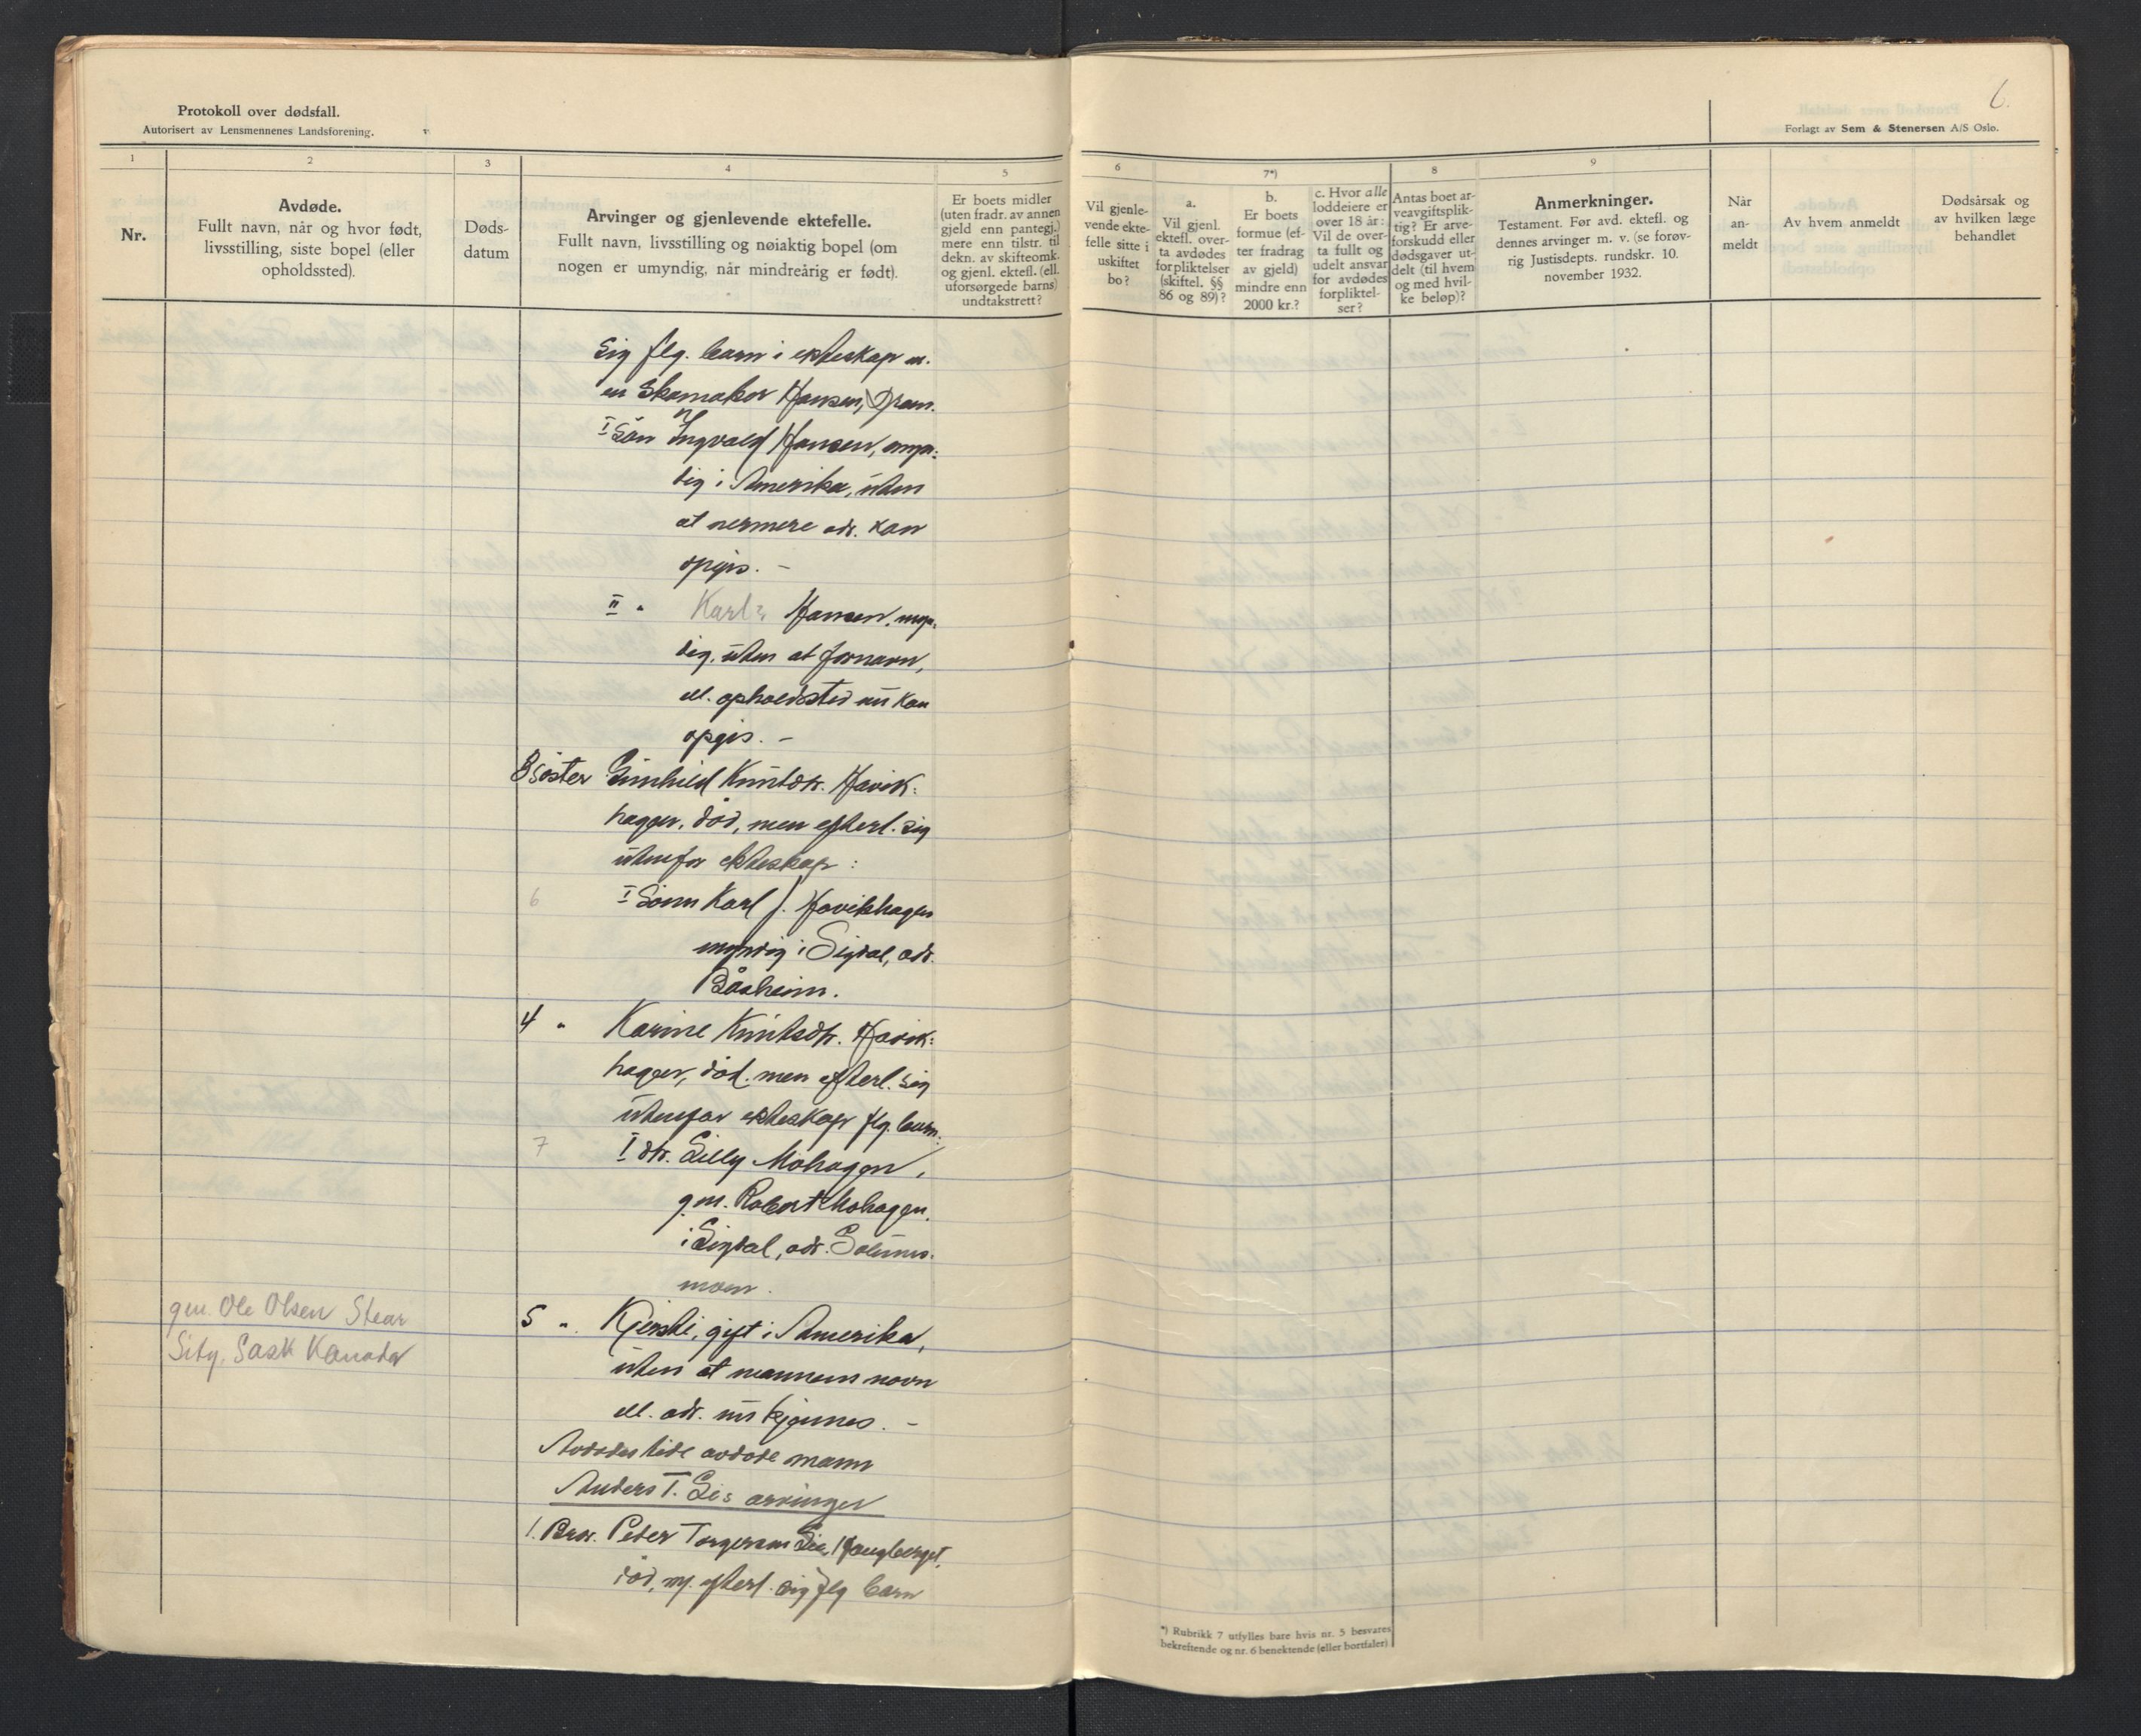 Protokoll over dødsfall.
Autorisert av Lensmennenes Landsforening.
6.
Forlagt av Sem & Stenersen A/S Oslo.
1
2
3
4
5
6
7*)
8
9
Nr.
Avdøde.
Fullt navn, når og hvor født,
livsstilling, siste bopel (eller
opholdssted).
Døds-
datum
Arvinger og gjenlevende ektefelle.
Fullt navn, livsstilling og nøiaktig bopel (om
nogen er umyndig, når mindreårig er født).
Er boets midler
(uten fradr. av annen
gjeld enn pantegj.)
mere enn tilstr. til
dekn. av skifteomk.
og gjenl. ektefl. (ell.
uforsørgede barns)
undtakstrett?
Vil gjenle-
vende ekte-
felle sitte i
uskiftet
bo?
a.
Vil gjenl.
ektefl. over-
ta avdødes
forpliktelser
(skiftel. §§
86 og 89)?
b.
Er boets
formue (ef-
ter fradrag
av gjeld)
mindre enn
2000 kr.?
c. Hvor alle
loddeiere er
over 18 år:
Vil de over-
ta fullt og
udelt ansvar
for avdødes
forpliktel-
ser?
Antas boet ar-
veavgiftsplik-
tig? Er arve-
forskudd eller
dødsgaver ut-
delt (til hvem
og med hvil-
ke beløp)?
Anmerkninger.
Testament. Før avd. ektefl. og
dennes arvinger m. v. (se forøv-
rig Justisdepts. rundskr. 10.
november 1932.
Når
an-
meldt
Av hvem anmeldt
Dødsårsak og
av hvilken læge
behandlet
sig flg. barn i ekteskap m.
en Skomaker Hansen, Dram.
I Sön Ingvald Hansen, myn:
dig i Amerika, uten
at nermere adr. kan
opgis. –
II " Karl? Hansen, myn:
dig, uten at fornavn,
ell. opholdssted nu kan
opgis. –
3 Söster Gunhild Knutdtr. Havik:
hagen, död, men efterl. sig
utenfor ekteskap:
6 I Sönn Karl J. Havikhagen
myndig i Sigdal, adr.
Båsheim.
4 " Karine Knutsdtr. Havik:
hagen, död, men efterl. sig
utenfor ekteskap flg. barn:
7 I dtr. Lilly Mohagen,
gm. Robert Mohagen.
i Sigdal, adr. Solums-
moen.
gm. Ole Olsen Stear
Sity. Sask Kanada
5 " Kjersti, gift i Amerika,
uten at mannens navn
ell. adr. nu kjennes. –
Avdødes tidl. avdøde mann
Anders T. Lis arvinger
1. Bror. Peter Torgersen Lia, Haugberget,
död, m. efterl. sig flg barn
*) Rubrikk 7 utfylles bare hvis nr. 5 besvares
bekreftende og nr. 6 benektende (eller bortfaler)